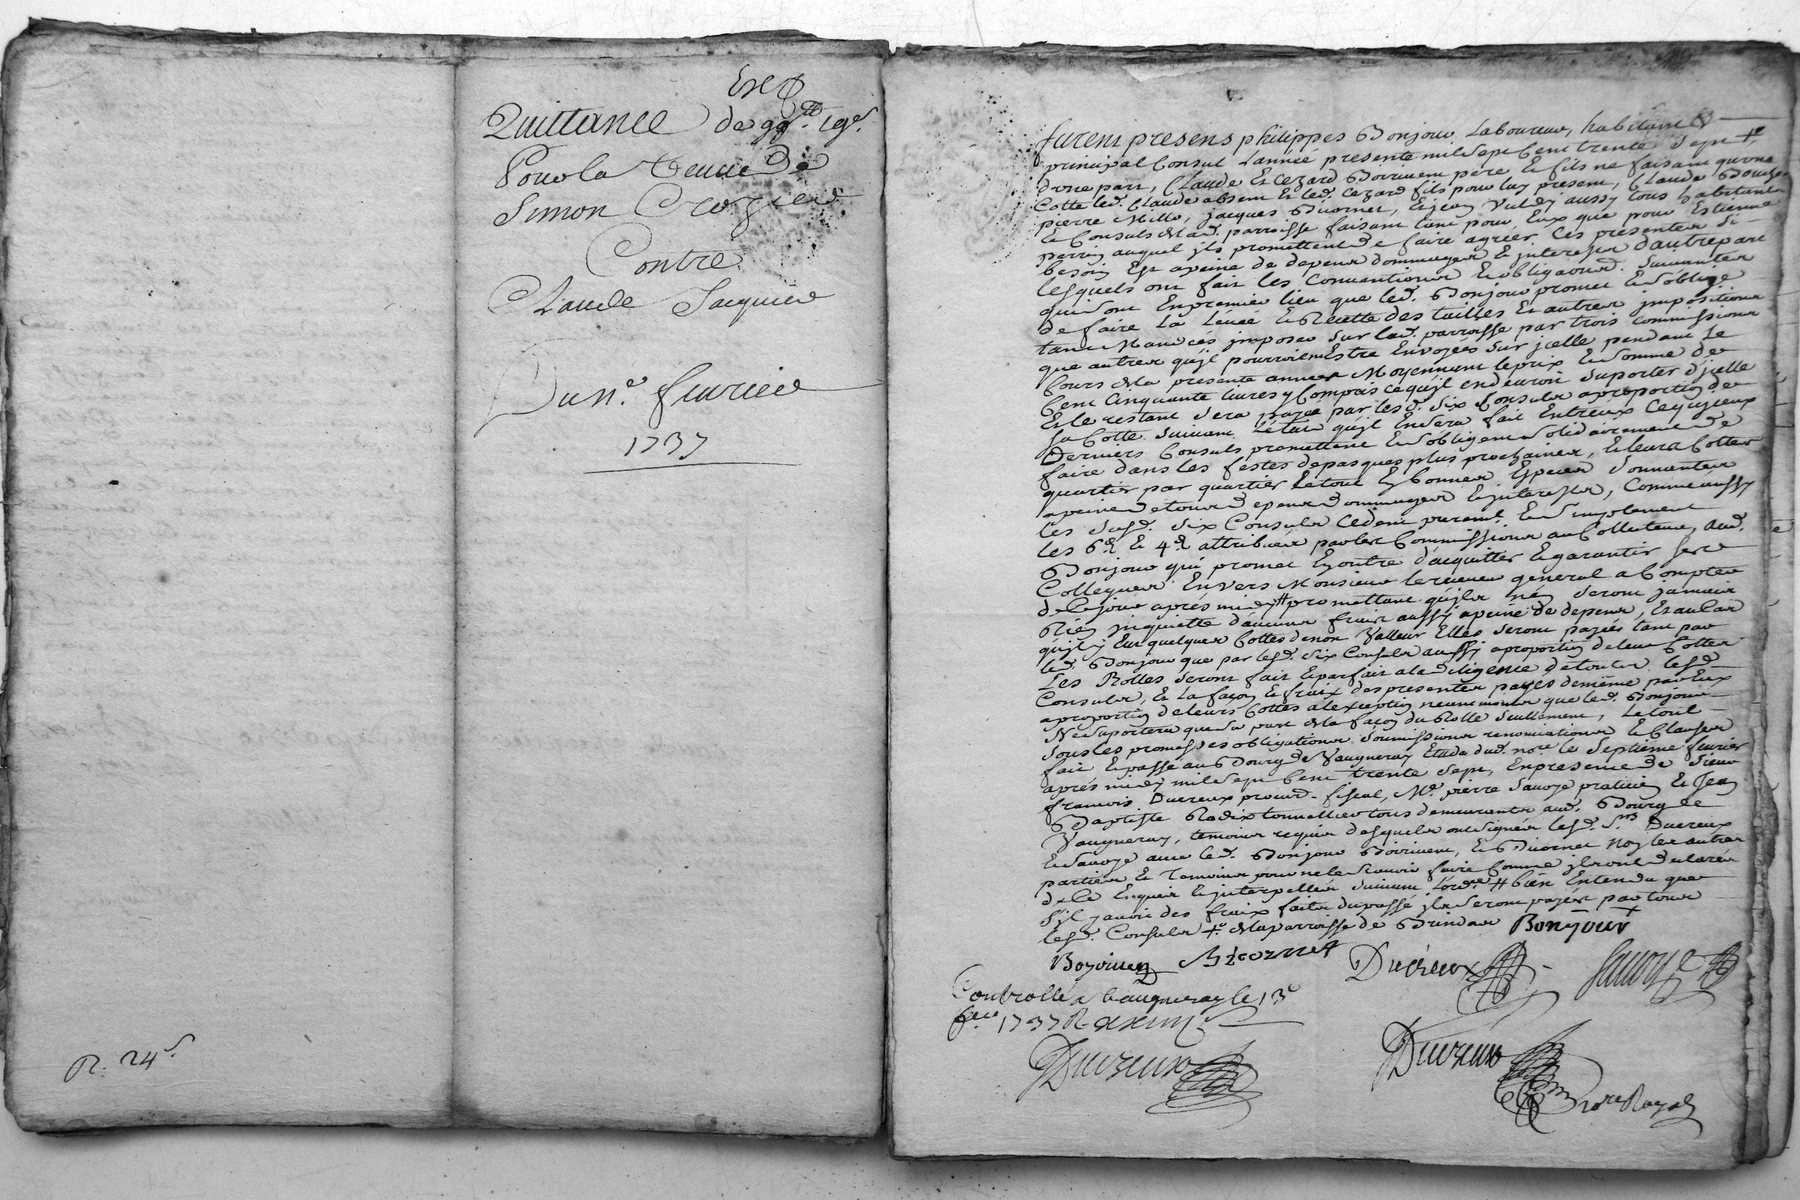 Exp
Quittance de 99tt 19s.
Pour la veuve de
Simon Crozier
Contre
Claude Jacquier
Du n.e fevrier
1737
R. 24s
furent presens philippes Bonjour Laboureur, habitant &
principal Consul L'année presente mil sept Cent trente sept +.e
d'une part, Claude Et Cezard Boirivent père & fils ne faisant qu'une
Cotte led. Claude absent Et led. Cezard fils pour luy present, Claude
pierre Mille, jacques Bicornet, aussy tous habitants
& Consuls de lad. parroisse faisant tant pour Eux que pour Estienne
perrin auquel ils promettent de faire agréer Ces presentes si
besoin Est a peine de depens dommages & interests d'autre part
lesquels ont fait les Conventions & obligations Suivantes
qui sont En premier lieu que led. Bonjour promet & s'oblige
de faire La Levée & Recette des tailles Et autres impositions
tant imposées sur lad. parroisse par trois Commissions
que autres qu'jl pourroient Estre Envoyées sur jcelle pendant le
Cours de la presente année Moyennant le prix & somme de
Cent Cinquante livres y Compris ce qu'jl en devroit suporter d'jcelle
Et le restant sera payée par lesd. six Consuls a proportion de
sa Cotte suivant L'état qu'jl En sera fait Entr'eux Ce qu'jceux
Derniers Consuls promettent & s'obligent solidairement de
faire dans les festes de pasques plus prochaines, & leurs Cottes
quartier par quartier Le tout En bonnes Especes sonnantes
a peine de tous depens dommages & interests, Comme aussy
les susd. six Consuls cedent purement & simplement
les 6d. & 4d. attribués par les Commissions au Collecteur, aud.
Bonjour qui promet En outre d'acquitter & garantir ses
Collegues Envers Monsieur le receveur general a Compter
de Ce jour après midy # promettant qu'jls n'En seront jamais
Rien jnquietté d'aucuns fraix aussy a peine de depens, Et au Cas
qu'jl y Eut quelques Cottes de non Valleur Elles seront payées tant par
led. Bonjour que par lesd. six Consuls aussy a proportion de leurs Cottes
Les Rolles seront fait & parfait a la diligence de tous lesd.
Consuls, & La façon & fraix des presentes payés de même par Eux
a proportion de leurs Cottes a l'exception neanmoins que led. Bonjour
Ne suportera que sa part de la façon du Rolle seullement, Le tout
sous les promesses obligations soumissions renonciations & Clauses
fait & passé au Bourg de Vaugneray Etude dud. nore le septieme fevrier
après midy mil sept Cent trente sept, En presence de sieur
francois Ducreux procur. fiscal, Me. pierre Savoye praticien Et Jean
Baptiste Radix tonnellier tous demeurants aud. Bourg de
Vaugneray, temoins requis desquels ont signés lesd. Srs Ducreux
& Savoye avec led. Bonjour Boirivent, & Bicornet Non les autres
parties & Temoins pour ne le sçavoir faire Comme jls ont declarés
de Ce Enquis & jnterpellés suivant L'orde # bien Entendu que
s'jl y avoit des fraix faits du passé jls seront payés par tous
lesd. Consuls +.e de la parroisse de Brindas Bonjour
Boyrivent Bicornet Ducreux Savoye
Controllé a Vaugneray le 13e
fevr. 1737 R.
Ducreux Ducreux
nore Royal